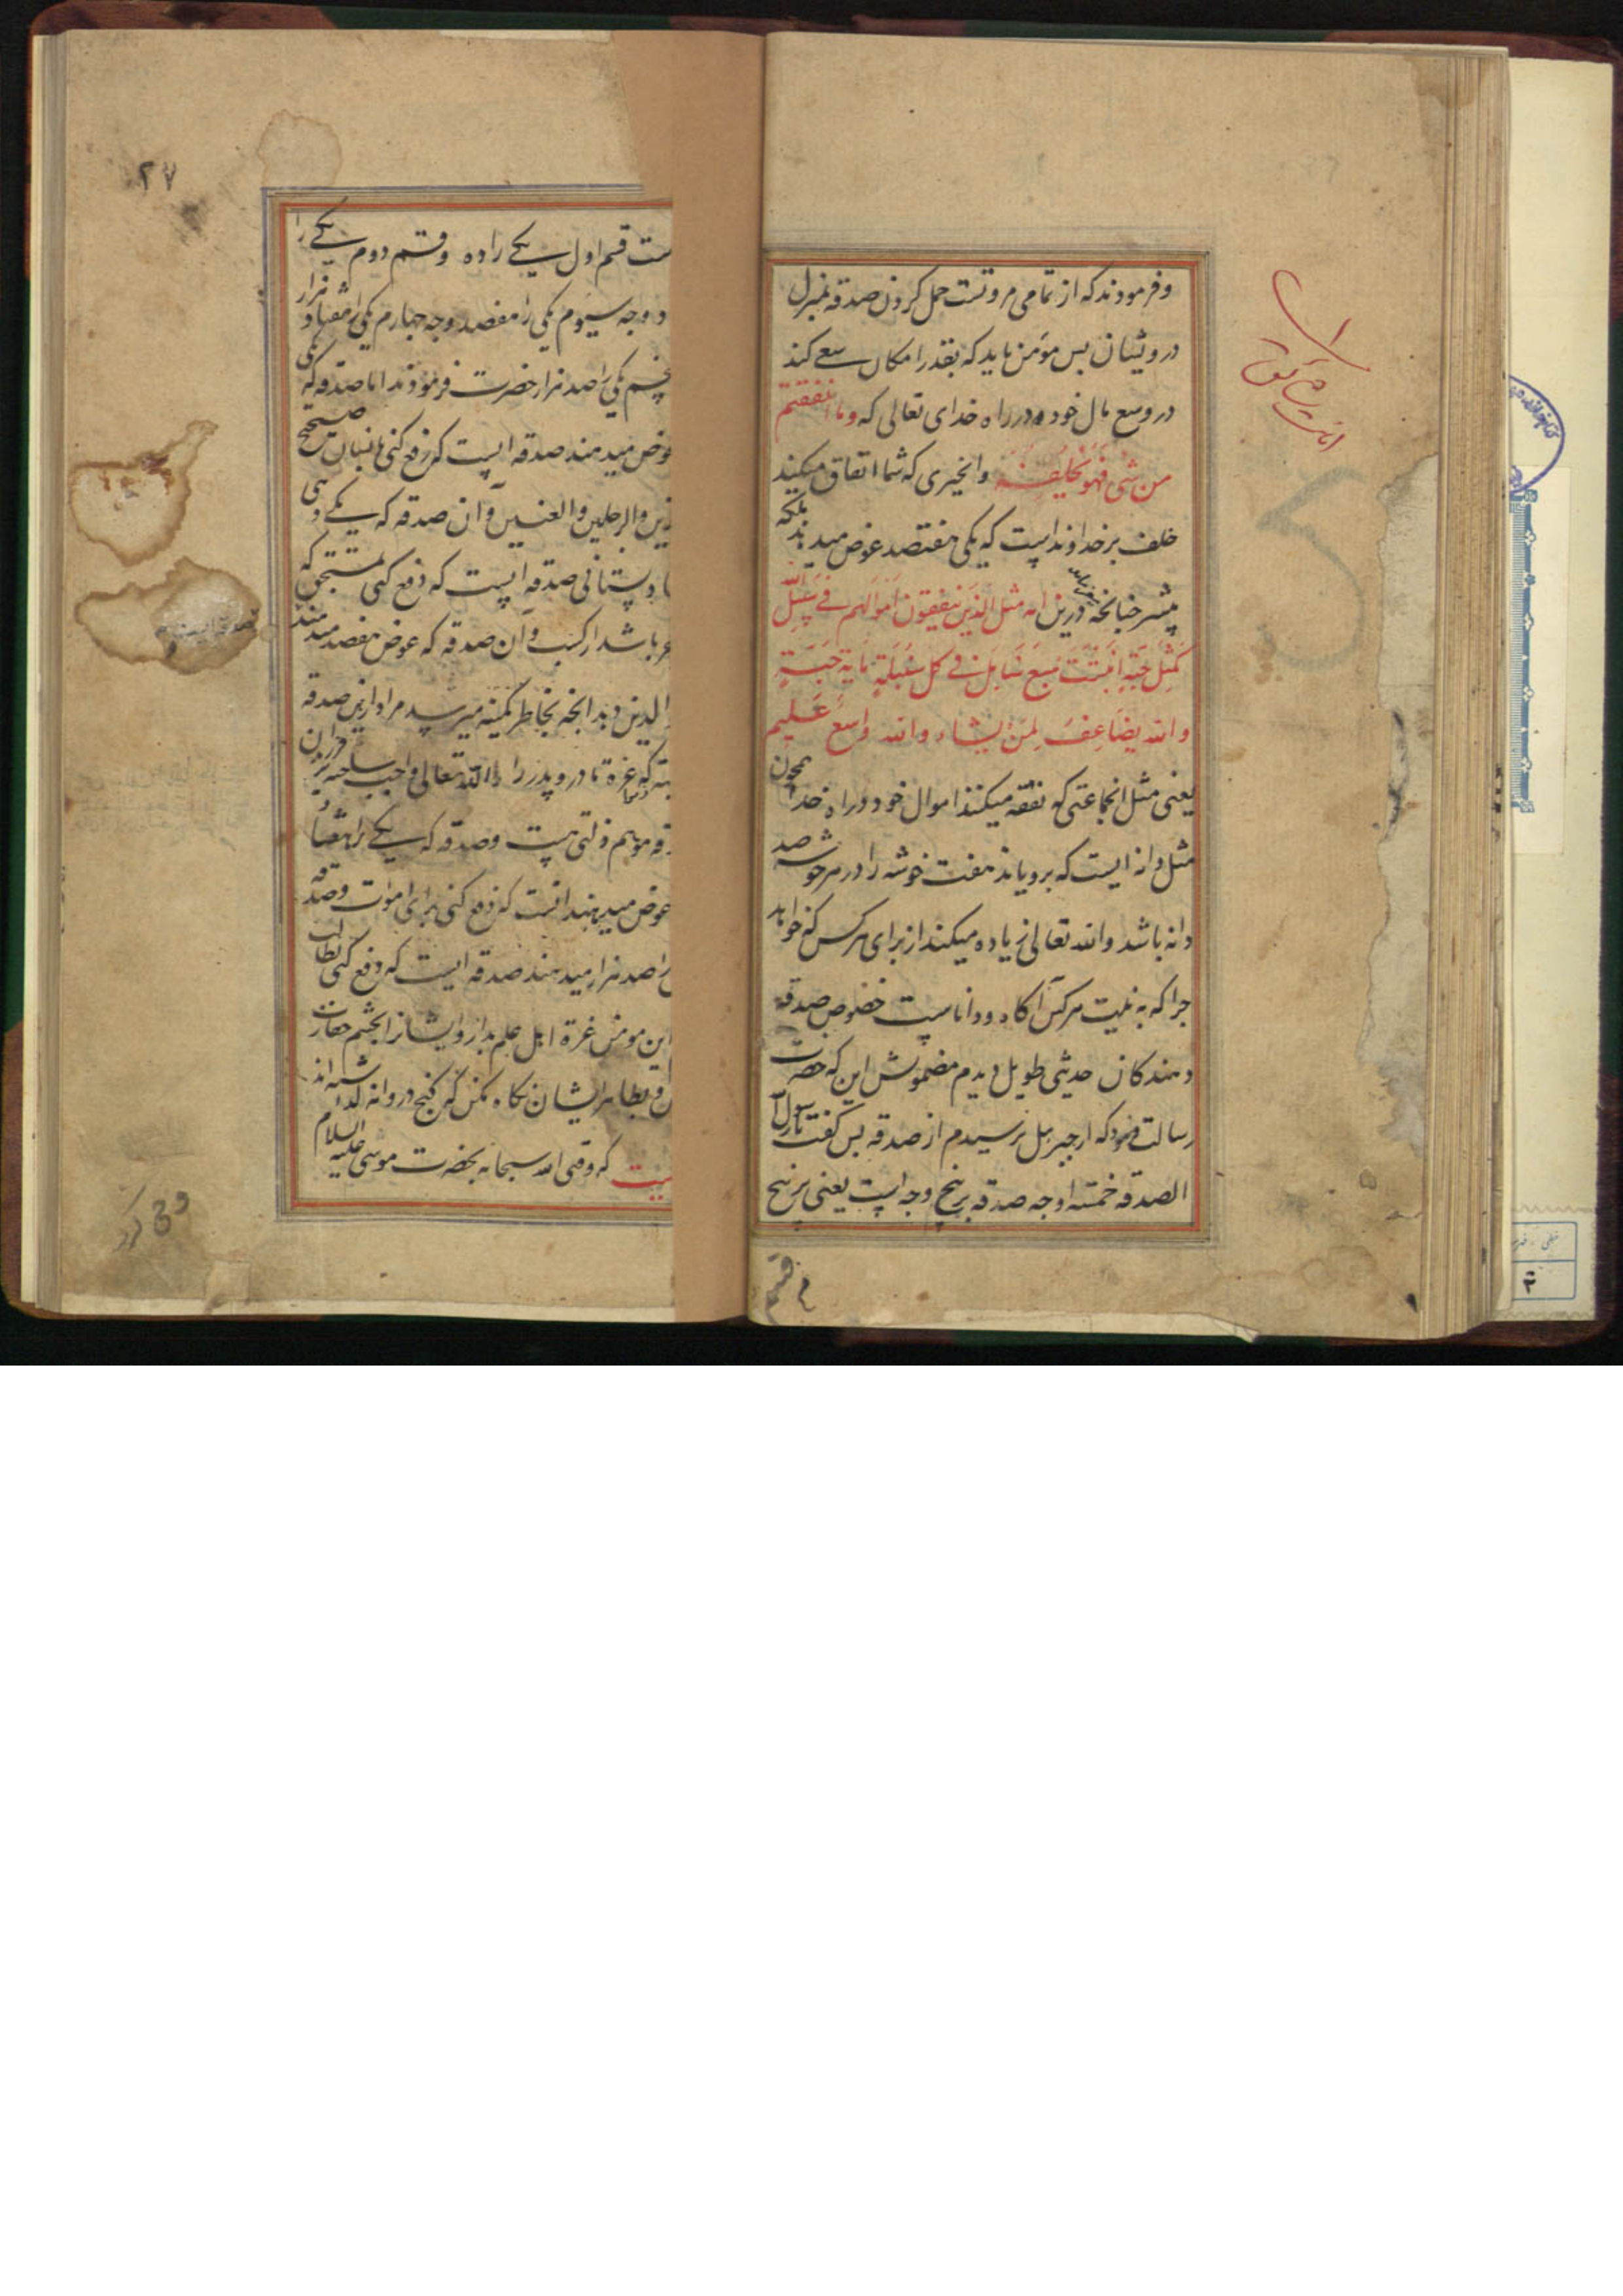 وفرمودند که از تمامی مروتست حمل کردن صدقه بمنزل
درویشان پس مؤمن باید که بقدر امکان سعی کند
در وسع مال خود در راه خدای تعالی که وما انفقتم
من شی فهو یخلفه وانچیزی که شما انفاق میکنید
خلف بر خداونداست که یکی هفتصد عوض میدهد بلکه
بیشتر چنانچه درین ایه مثل الذین ینفقون اموالهم فی سبیل الله
کمثل حبة انبتت سبع سنابل فی کل سنبلة مایة حبة
والله یضاعف لمن یشاء والله واسع علیم
یعنی مثل انجماعتی که نفقه میکنند اموال خود در راه خدا همچون
مثل دانه ایست که برویاند هفت خوشه را در هر خوشه صد
دانه باشد والله تعالی زیاده میکند از برای هرکس که خواهد
چرا که به نیت هرکس آگاه ودانا ست خصوص صدقه
دهندکان حدیثی طویل دیدم مضمونش این که حضرت
رسالت فرمود که از جبرییل پرسیدم از صدقه پس گفت یا رسول الله
الصدقه خمسه اوجه صدقه بر پنج وجه است یعنی بر پنج
قسم
۲۷
ست قسم اول یکی را ده وقسم دوم یکی را
د وجه سیوم یکی را هفصد وجه چهارم یکی را هفتاد هزار
پنجم یکی را صد هزار حضرت فرمودند اما صدقه که یکی
عوض میدهند صدقه ایست که دفع کنی بانسان صحیح
دین والرجلین والعینین وآن صدقه که یکی را
با وستانی صدقه ایست که دفع کنی بمستحق که
باشد از کسب وآن صدقه که عوض هفصد میدهند
الدین دهد انچه بخاطر کمینه میرسد مراد ازین صدقه
که غره مادر وپدر را الله تعالی واجب ساخته
قه موهم ذلتی نیست وصدقه که یکی را هفتاد
عوض میدهند انست که دفع کنی برای اموات وصدقه
را صد هزار میدهند صدقه ایست که دفع کنی بطالب
این مومن غرة اهل علم بدار وایشانرا بچشم حقارت
وبظاهر ایشان نکاه مکن که گنج در ویرانه
یست که وقتی الله سبحانه بحضرت موسی علیه السلام